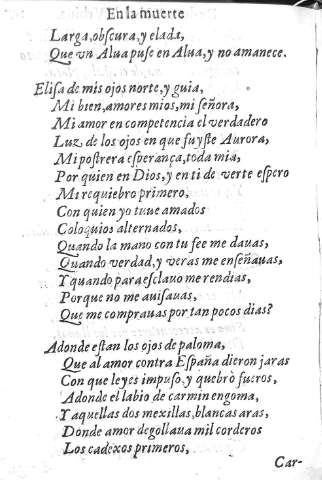 En la muerte
Larga, obscura, y elada,
Que vn Alua puse en Alua, y no amanece.
Elisa de mis ojos norte, y guia,
Mi bien, amores mios, mi señora,
Mi amor en competencia el verdadero
Luz de los ojos en que fuyste Aurora,
Mi postrera esperança, toda mia,
Por quien en Dios, y en ti de verte espero
Mi requiebro primero,
Con quien yo tuue amados
Coloquios alternados,
Quando la mano con tu fee me dauas,
Quando verdad, y veras me enseñauas,
Y quando para esclauo me rendias,
Porque no me auisauas,
Que me comprauas por tan pocos dias?
Adonde estan los ojos de paloma,
Que al amor contra España dieron jaras
Con que leyes impuso, y quebrò fueros,
Adonde el labio de carmin en goma,
Y aquellas dos mexillas, blancas aras,
Donde amor degollaua mil corderos
Los cadexos primeros,
Car-